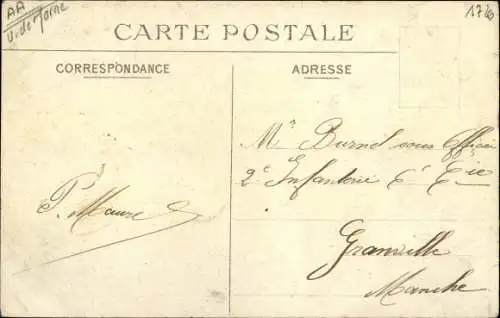 AA
V. de Marne
176
CARTE POSTALE
CORRESPONDANCE
ADRESSE
Mr Burnel sous Officier
2e Infanterie 6e Cie
P. Maure
Granville
Manche